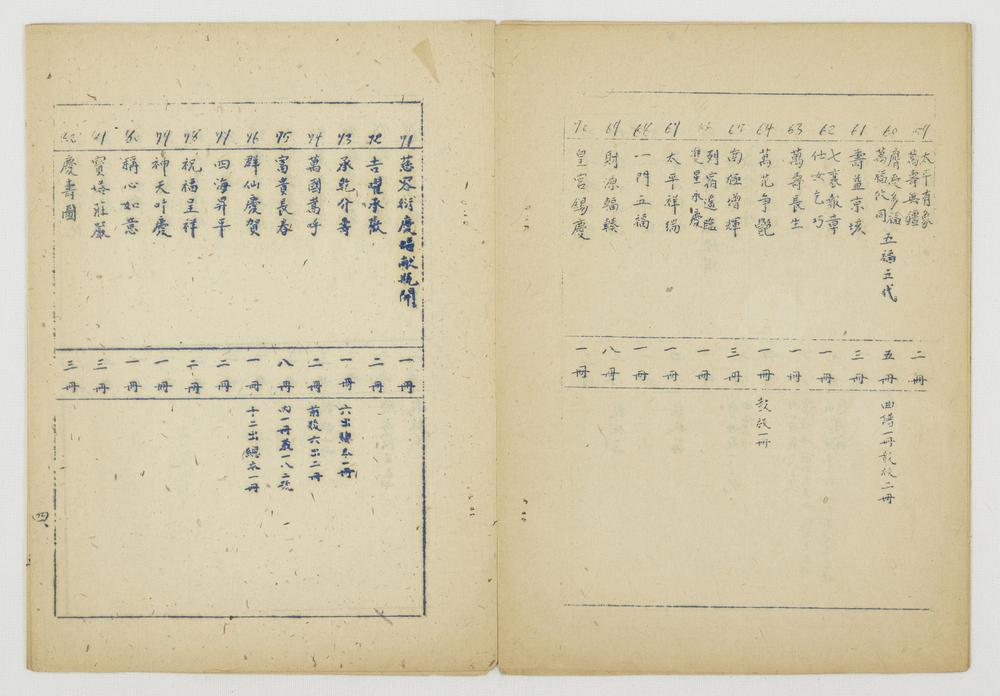 59 太平有象 萬壽無疆 二冊
60 膺受多福 萬福攸同 五福五代 五冊 曲譜一冊
61 壽益京垓 三冊
62 七襄報章 仕女乞巧 一冊
63 萬壽長生 一冊
64 萬花爭艷 一冊
65 南極增輝 三冊
66 列宿遙臨 雙星永慶 一冊
67 太平祥瑞 一冊
68 一門五福 一冊
69 財源輻輳 八冊
70 皇宮錫慶 一冊
71 慈容衍慶 一冊
72 吉曜承歡 二冊
73 承乾介壽 一冊 六出總本一冊
74 萬國嵩呼 二冊 前後六出二冊
75 富貴長春 八冊
76 群仙慶賀 一冊 十二出總本一冊
77 四海昇平 二冊
78 祝福呈祥 二冊
79 神天叶慶 一冊
80 稱心如意 一冊
81 寶塔莊嚴 三冊
82 慶壽圖 三冊
四、